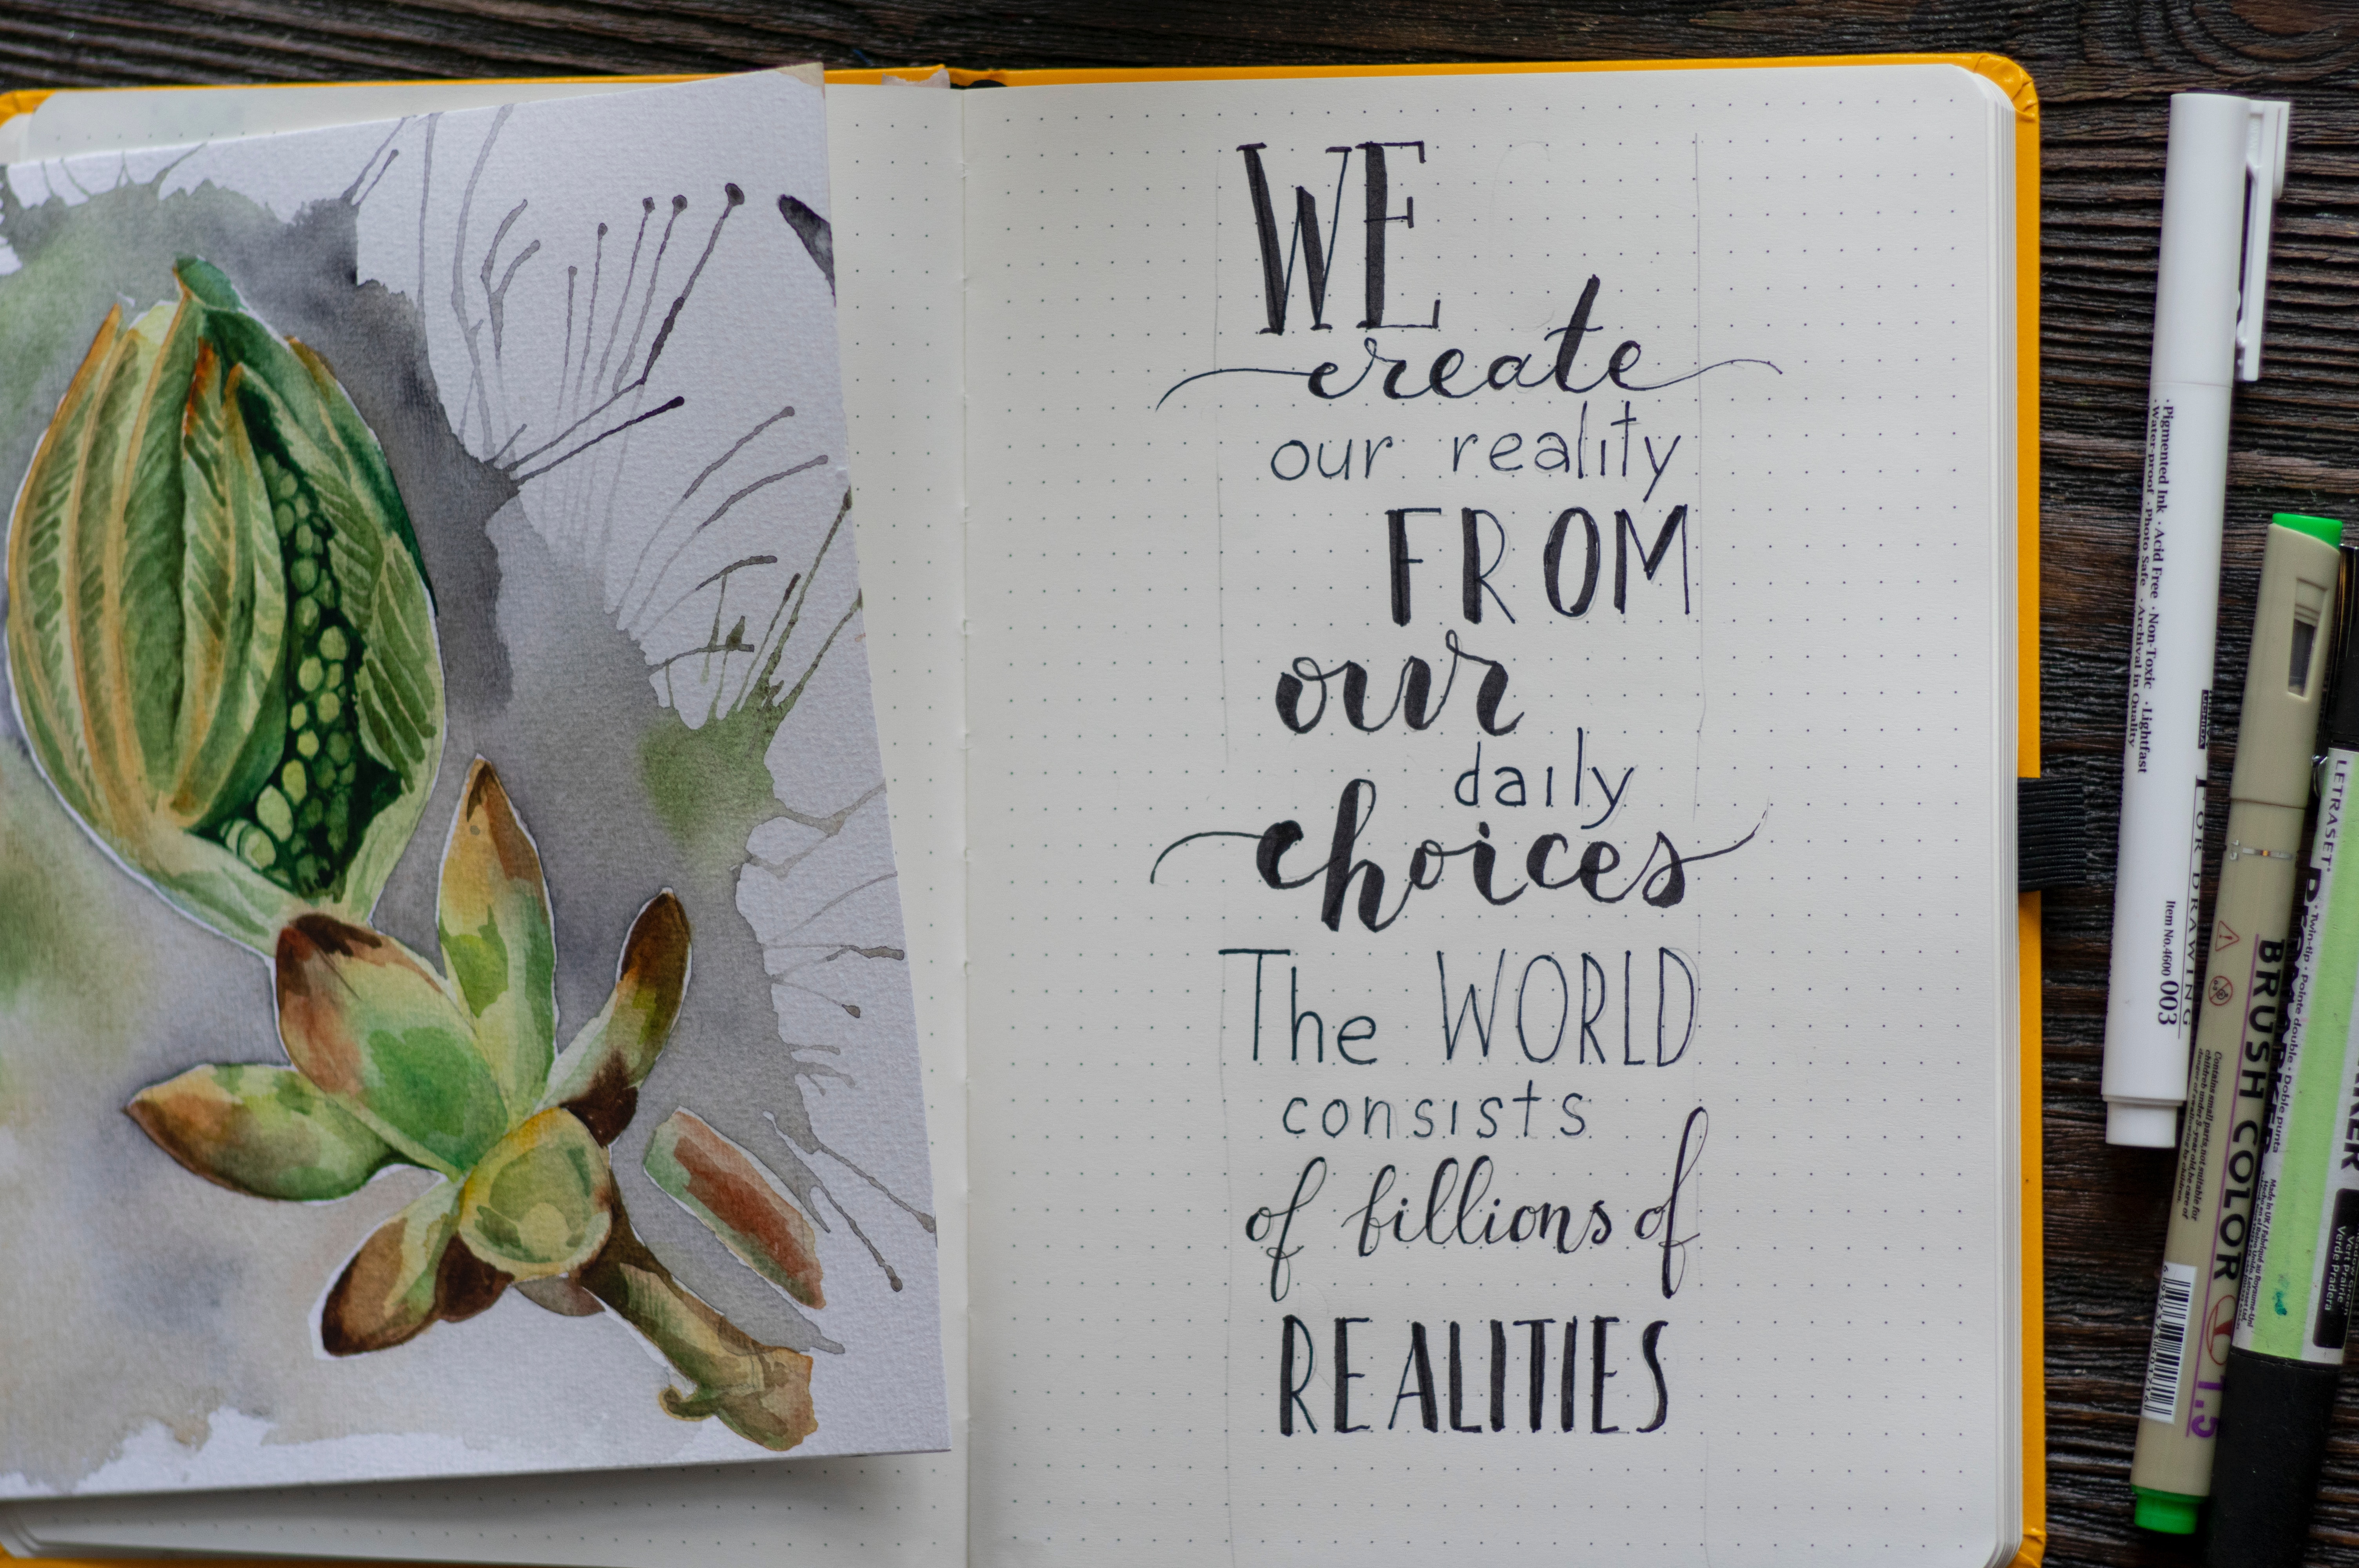 WE
create
our reality
FROM
our
daily
choices
The WORLD
consists
of billions of
REALITIES
·Pigmented Ink ·Acid Free ·Non-Toxic ·Lightfast
·Water-proof ·Photo Safe ·Archival in Quality
FOR DRAWING
Item No.4600 003
BRUSH COLOR
1.5
LETRASET
Twin-tip · Pointe double · Doble punta
Vert Prairie
Verde Pradera